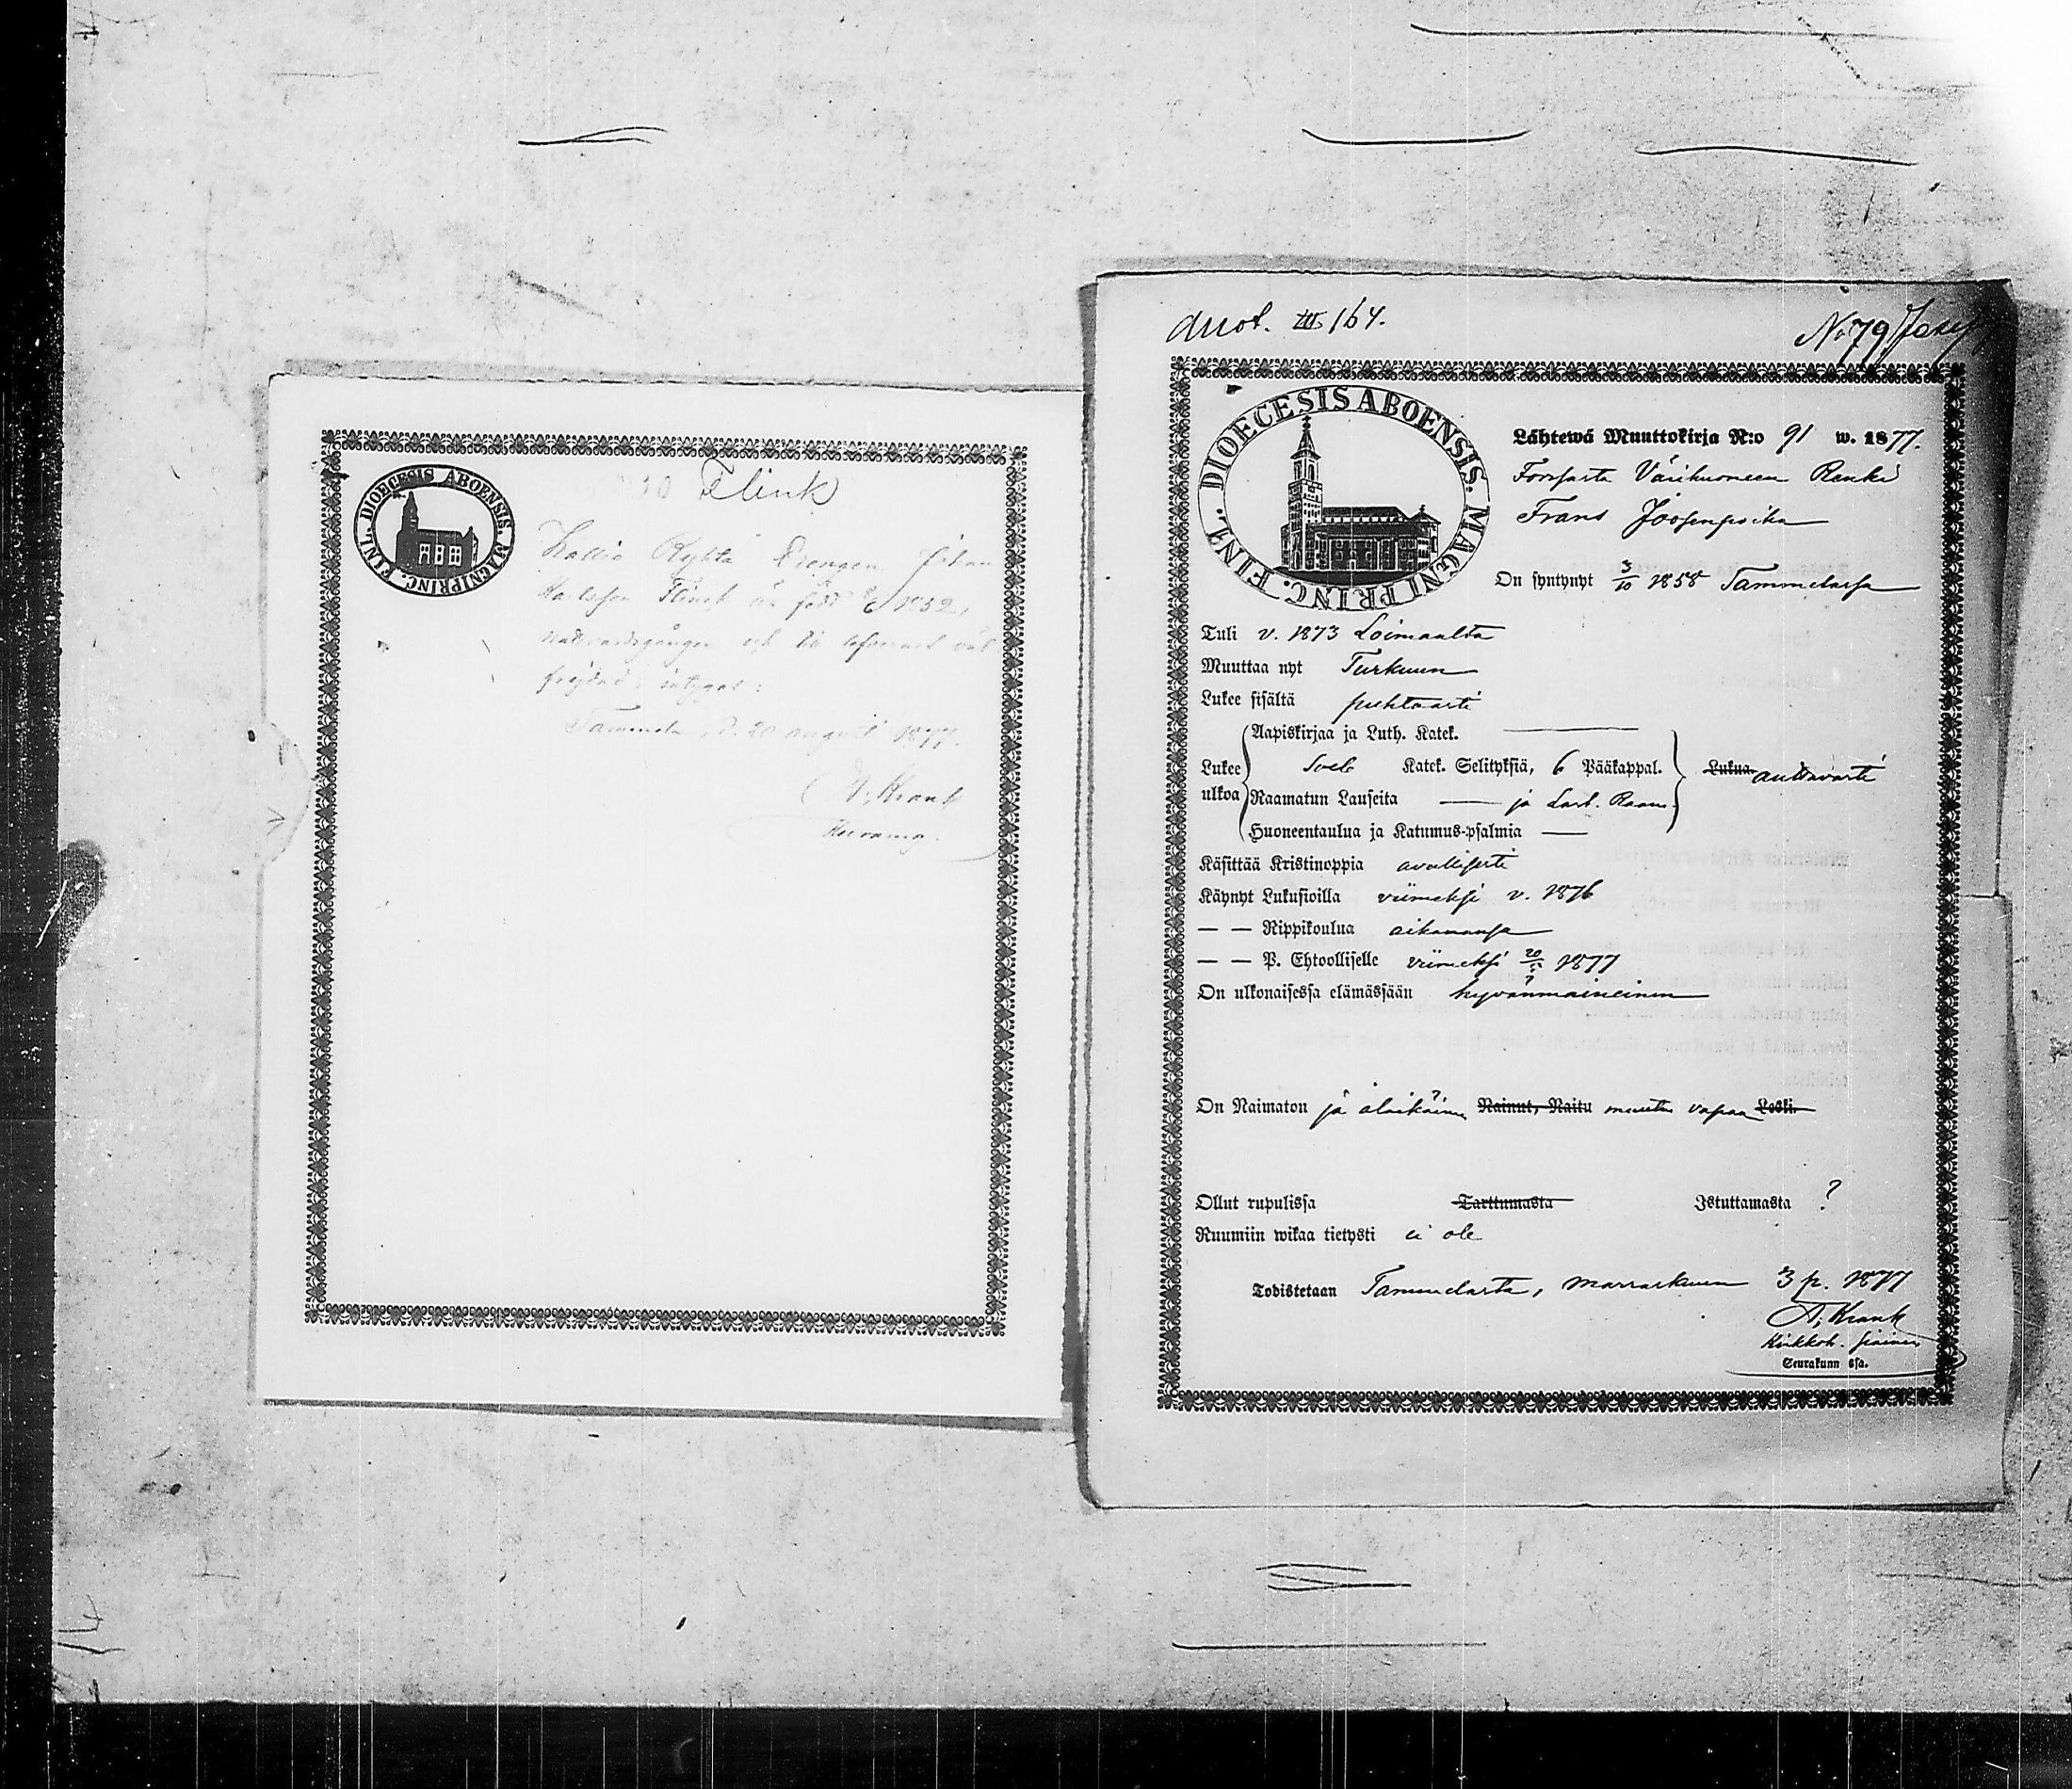 DIOECESIS ABOENSIS. MAGNI PRINC. FINL.
Flink
Kallio Rykta Drengen Johan
Flink är född 1832,
nattvardsgången och till lefvernet väl
frejdad, intygar:
Tammela, d. 20 augusti 1877.
Krank
Anot. III 164.
No 79 Josef
DIOECESIS ABOENSIS. MAGNI PRINC. FINL.
Lähtewä Muuttokirja N:o 91 w. 1877.
Forssasta Värihuoneen Renki
Frans Joosenpoika
On syntynyt 3/10 1858 Tammelassa
Tuli v. 1873 Loimaalta
Muuttaa nyt Turkuun
Lukee sisältä puhtaasti
Aapiskirjaa ja Luth. Katek. —
Lukee ulkoa Sveb Katek. Selityksiä, 6 Pääkappal. Lukua auttavasti
Raamatun Lauseita — ja Last. Raam.
Huoneentaulua ja Katumus-psalmia —
Käsittää Kristinoppia avullisesti
Käynyt Lukusioilla viimeksi v. 1876
— — Rippikoulua aikanansa
— — P. Ehtoolliselle viimeksi 20/5 ? 1877
On ulkonaisessa elämässään hyvänmaineinen
On Naimaton ja alaikäinen ? Nainut, Naitu muuten vapaa Leski.
Ollut rupulissa Tarttumasta Istuttamasta ?
Ruumiin wikaa tietysti ei ole
Todistetaan Tammelasta, marraskuun 3 p. 1877
Krank
Kirkkoh. sijainen
Seurakunn ssa.